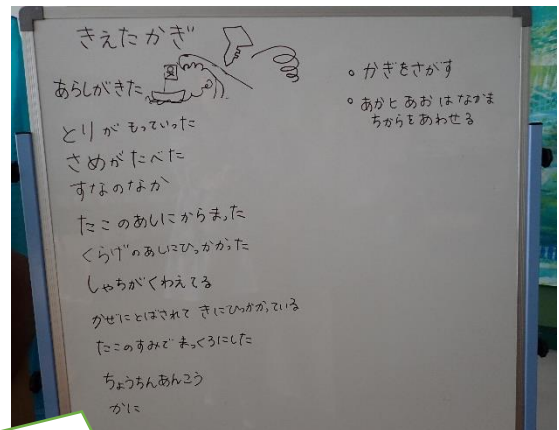 きえたかぎ
あらしがきた
とりがもっていった
さめがたべた
すなのなか
たこのあしにからまった
くらげのあしにひっかかった
しゃちがくわえてる
かぜにとばされて きにひっかかっている
たこのすみで まっくろにした
ちょうちんあんこう
かに
○ かぎをさがす
○ あかとあおはなかま
ちからをあわせる